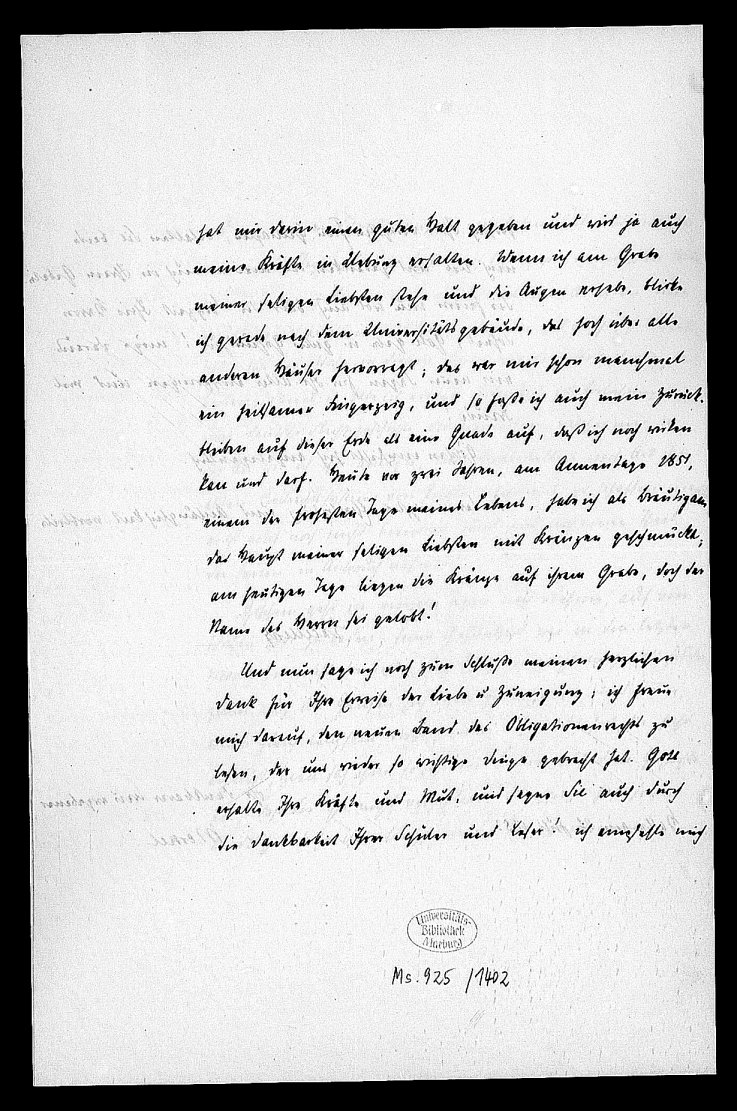 hat mir darin einen guten Halt gegeben und wird ja auch
meine Kräfte in Marburg erhalten. Wenn ich am Grabe
meiner seligen Liebsten stehe und die Augen erhebe, blicke
ich gerade nach dem Universitätsgebäude, das hoch über alle
anderen Häuser hervorragt; das war mir schon manchmal
ein heilsamer Fingerzeig, und so fasse ich auch mein Zurück-
bleiben auf dieser Erde als eine Gnade auf, daß ich noch wirken
kan und darf. Heute vor zwei Jahren, am Annentage 1851,
einem der frohesten Tage meines Lebens, habe ich als Bräutigam
das Haupt meiner seligen Liebsten mit Kränzen geschmückt;
am heutigen Tage liegen die Kränze auf ihrem Grabe, doch der
Name des Herrn sei gelobt!
Und nun sage ich noch zum Schluße meinen herzlichen
Dank für Ihre Erweise der Liebe u Zuneigung; ich freue
mich darauf, den neuen Band des Obligationenrechts zu
lesen, der uns wieder so wichtige Dinge gebracht hat. Gott
erhalte Ihre Kräfte und Mut, und segne Sie auch durch
die Dankbarkeit Ihrer Schüler und Leser! ich empfehle mich
Universitäts-
Bibliothek
Marburg
Ms. 925 /1402